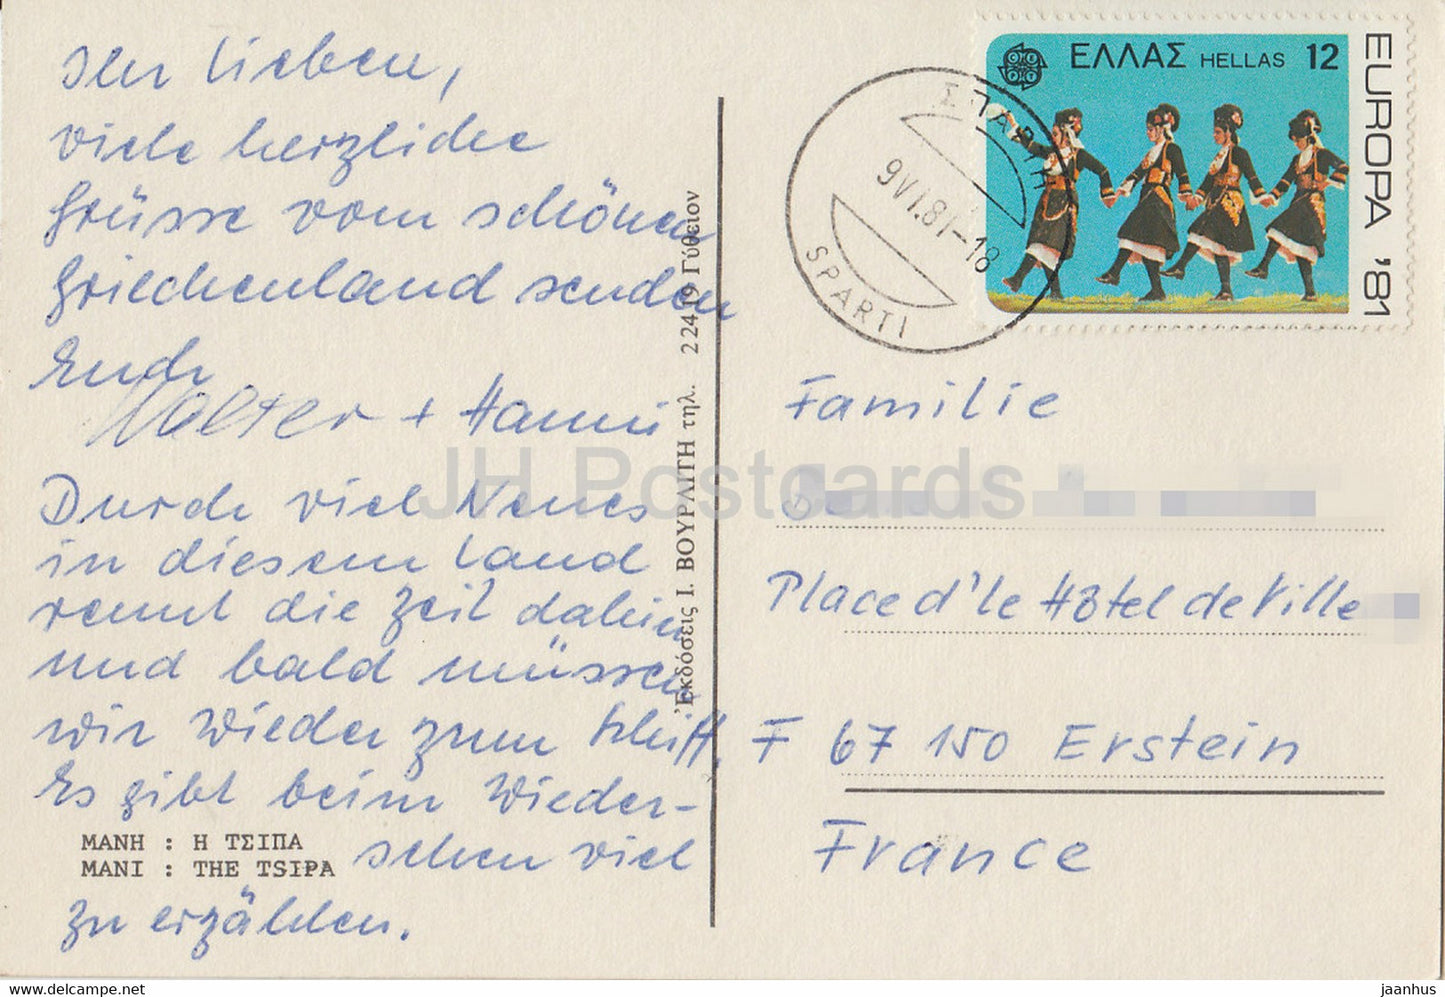 Ihr Lieben,
viele herzliche
Grüsse vom schönen
Griechenland senden
Euch
Walter + Hanni
Durch viel Neues
in diesem Land
rennt die Zeit dahin
und bald müssen
wir wieder zum Schiff.
Es gibt beim Wieder-
sehen viel
zu erzählen.
ΜΑΝΗ : Η ΤΣΙΠΑ
MANI : THE TSIPA
Ἐκδόσεις Ι. ΒΟΥΡΛΙΤΗ τηλ. 22419 Γύθειον
ΕΛΛΑΣ HELLAS 12
EUROPA '81
ΣΠΑΡΤΗ
9VI.81-18
SPARTI
Familie
Place d'le Hôtel de Ville
F 67 150 Erstein
France
JH Postcards
www.delcampe.net
jaanhus